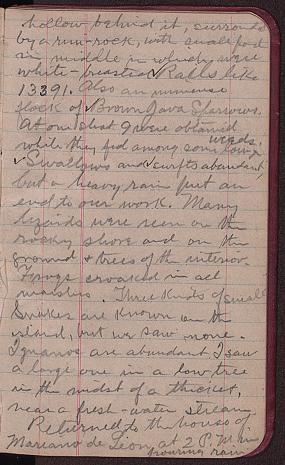 hollow behind it, surrounded
by a rim-rock, with small pool
in middle in which were
white-breasted ✓Rails like
13391. Also an immense
flock of ✓Brown Java Sparrows.
At one shot 9 were obtained
while they fed among some low weeds.
✓Swallows and ✓swifts abundant,
but a heavy rain put an
end to our work. Many
lizards were seen on the
rocky shore and on the
ground & trees of the interior.
Frogs croaked in all
marshes. Three kinds of small
snakes are known on the
island, but we saw none.
Iguanas are abundant. I saw
a large one in a low tree
in the midst of a thicket,
near a fresh-water stream.
Returned to the house of
Mariano de Leon, at 2 P.M. in
pouring rain